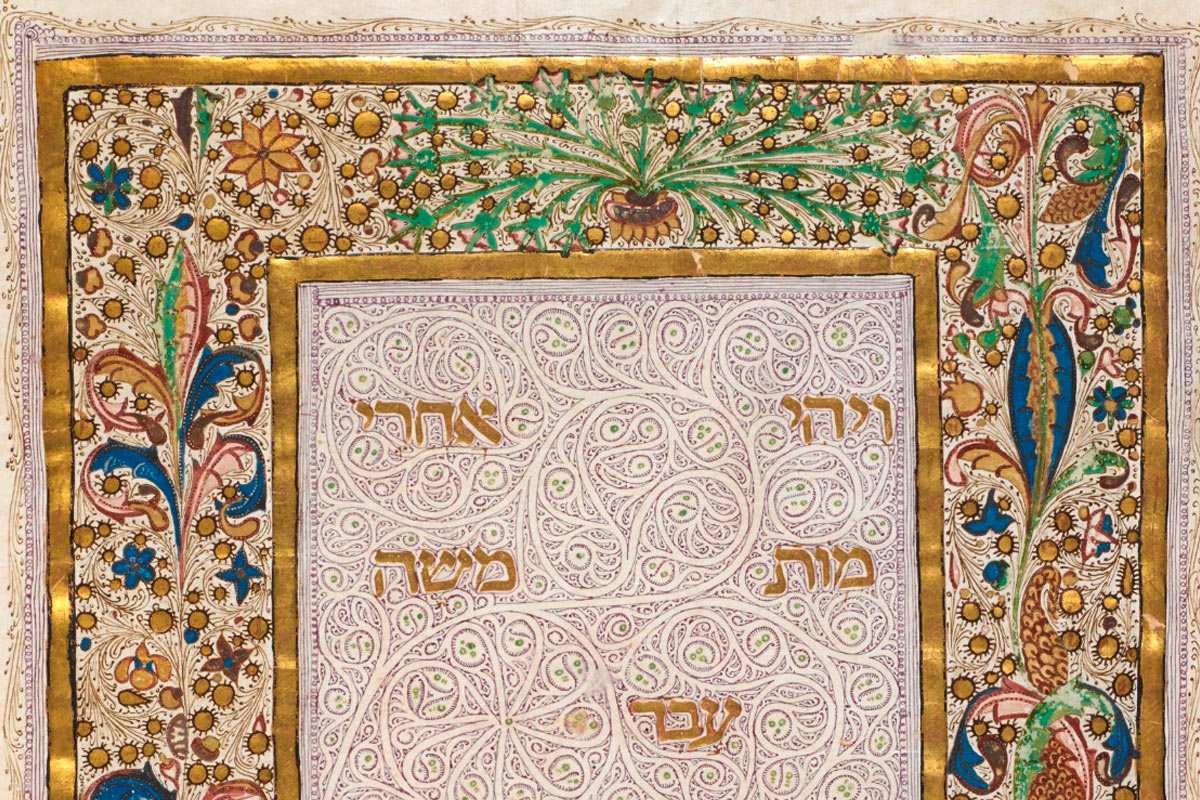 ויהי אחרי
מות משה
עבד